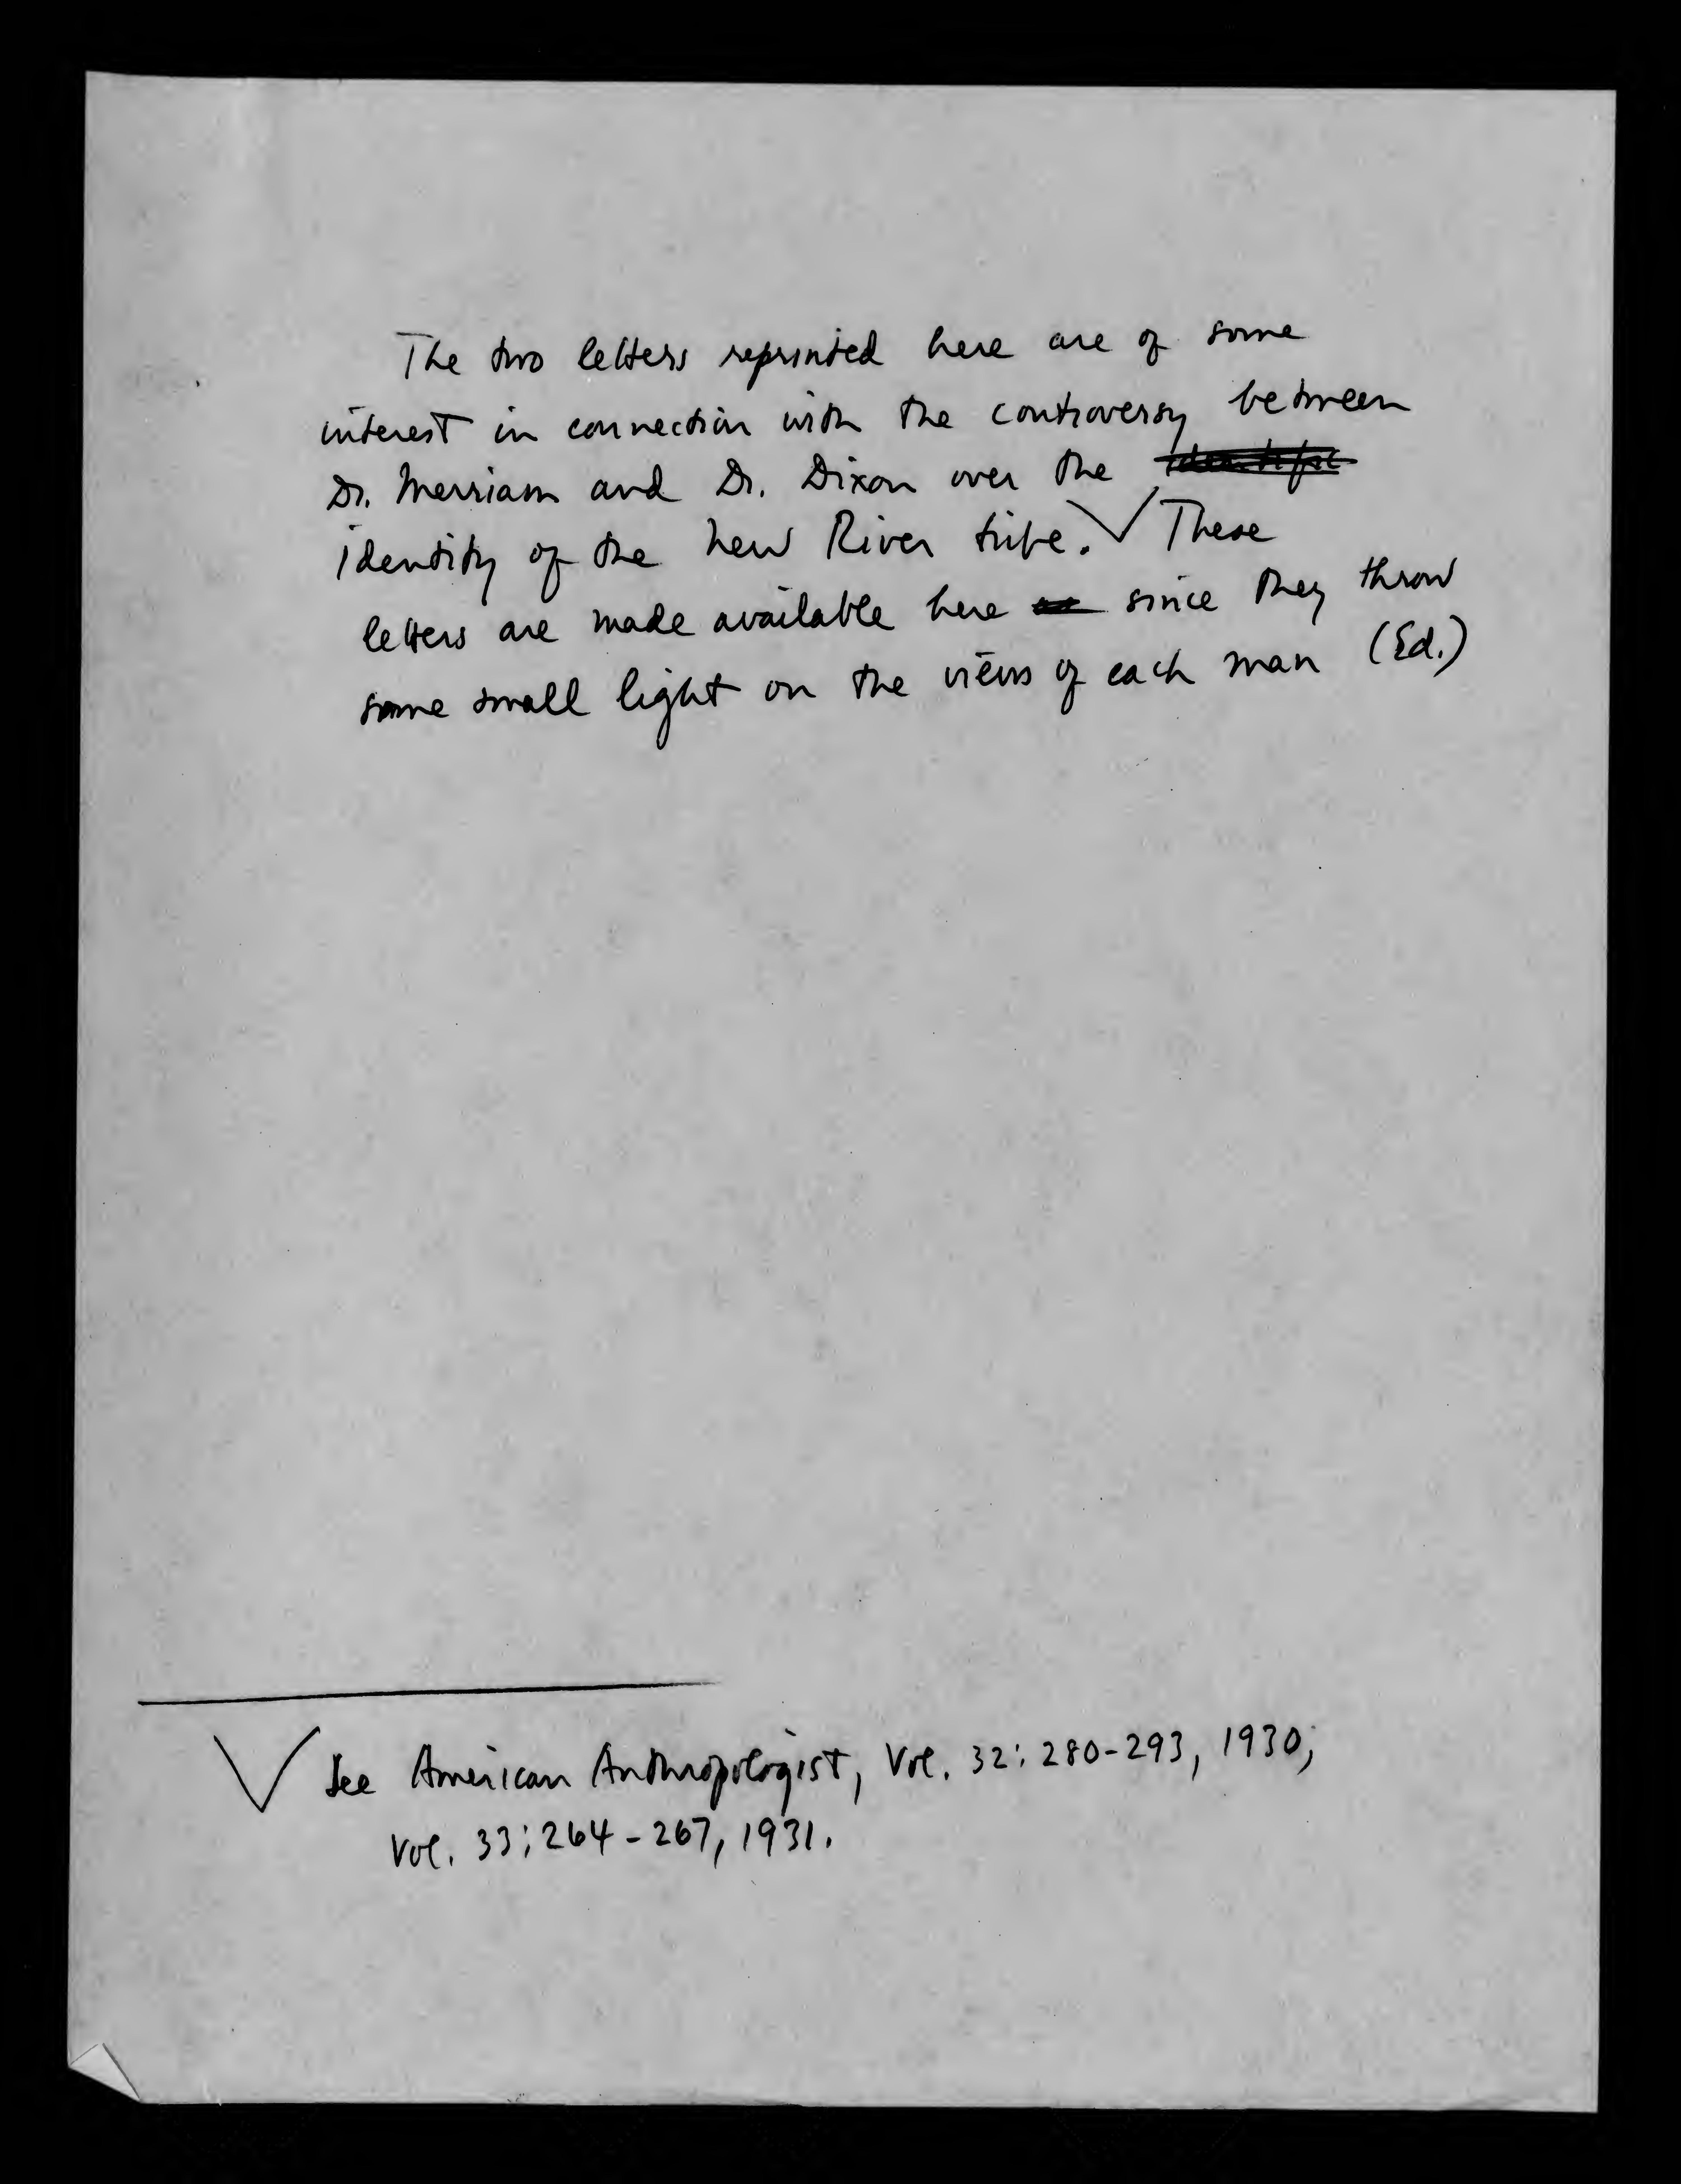 The two letters reprinted here are of some
interest in connection with the controversy between
Dr. Merriam and Dr. Dixon over the
identity of the New River tribe. √ These
letters are made available here since they throw
some small light on the views of each man (Ed.)
√ See American Anthropologist, Vol. 32: 280-293, 1930;
Vol. 33; 264-267, 1931.